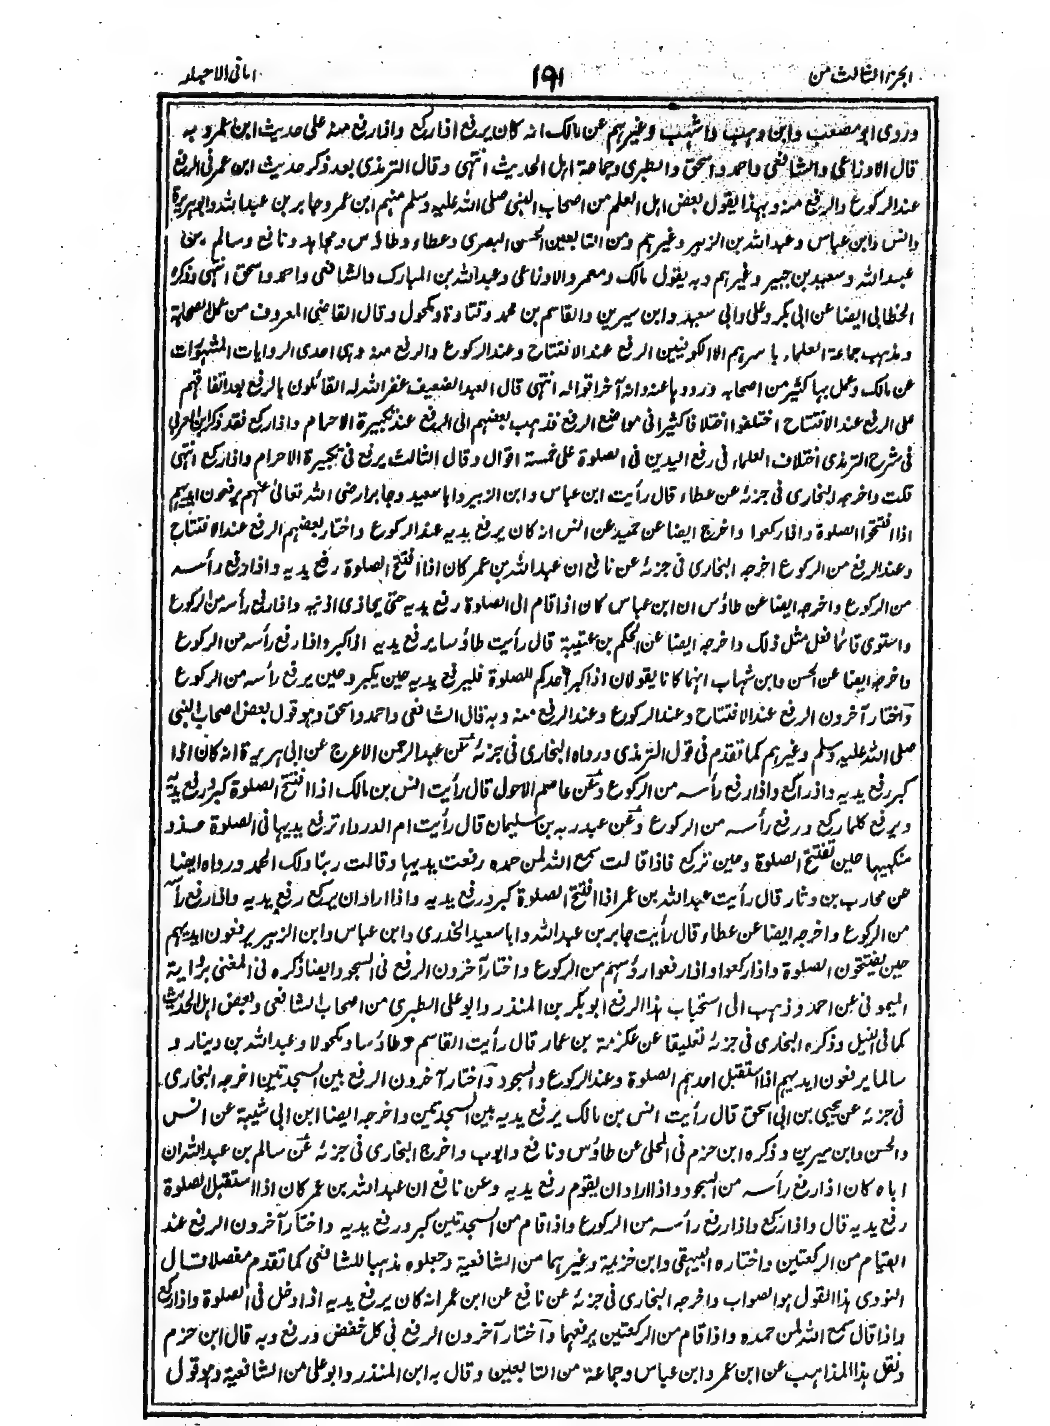 الجزء الثالث من ١٩١ امانى الاحبار
وروى ابو مصعب وابن وهب واشهب وغيرهم عن مالك انه كان يرفع اذا ركع واذا رفع منه على حديث ابن عمر وبه
قال الاوزاعى والشافعى واحمد واسحق والطبرى وجماعة اهل الحديث انتهى وقال الترمذى بعد ذكر حديث ابن عمر فى الرفع
عند الركوع والرفع منه وبهذا يقول بعض اهل العلم من اصحاب النبى صلى الله عليه وسلم منهم ابن عمر وجابر بن عبد الله وابو هريرة
وانس وابن عباس وعبد الله بن الزبير وغيرهم ومن التابعين الحسن البصرى وعطاء وطاؤس ومجاهد ونافع وسالم بن
عبد الله وسعيد بن جبير وغيرهم وبه يقول مالك ومعمر والاوزاعى وعبد الله بن المبارك والشافعى واحمد واسحق انتهى وذكره
الخطابى ايضا عن ابى بكر وعلى وابى سعيد وابن سيرين والقاسم بن محمد وقتادة ومكحول وقال القاضى المعروف من عمل الصحابة
ومذهب جماعة العلماء باسرهم الا الكوفيين الرفع عند الافتتاح وعند الركوع والرفع منه وهى احدى الروايات المشهورات
عن مالك وعمل بها كثير من اصحابه ورووها عنه وانه آخر اقواله انتهى قال العبد الضعيف غفر الله له القائلون بالرفع بعد اتفاقهم
على الرفع عند الافتتاح اختلفوا اختلافا كثيرا فى مواضع الرفع فذهب بعضهم الى الرفع عند تكبيرة الاحرام واذا ركع فقد ذكر ابن العربى
فى شرح الترمذى اختلاف العلماء فى رفع اليدين فى الصلوة على خمسة اقوال وقال الثالث يرفع فى تكبيرة الاحرام واذا ركع انتهى
قلت واخرجه البخارى فى جزئه عن عطاء قال رأيت ابن عباس وابن الزبير وابا سعيد وجابرا رضى الله تعالى عنهم يرفعون ايديهم
اذا افتتحوا الصلوة واذا ركعوا واخرج ايضا عن حميد عن انس انه كان يرفع يديه عند الركوع واختار بعضهم الرفع عند الافتتاح
وعند الرفع من الركوع اخرجه البخارى فى جزئه عن نافع ان عبد الله بن عمر كان اذا افتتح الصلوة رفع يديه واذا رفع رأسه
من الركوع واخرجه ايضا عن طاؤس ان ابن عباس كان اذا قام الى الصلوة رفع يديه حتى يحاذى اذنيه واذا رفع رأسه من الركوع
واستوى قائما فعل مثل ذلك واخرجه ايضا عن الحكم بن عتيبة قال رأيت طاؤسا يرفع يديه اذا كبر واذا رفع رأسه من الركوع
واخرجه ايضا عن الحسن وابن شهاب انهما كانا يقولان اذا كبر احدكم للصلوة فليرفع يديه حين يكبر وحين يرفع رأسه من الركوع
وآختار آخرون الرفع عند الافتتاح وعند الركوع وعند الرفع منه وبه قال الشافعى واحمد واسحق وهو قول بعض اصحاب النبى
صلى الله عليه وسلم وغيرهم كما تقدم فى قول الترمذى ورواه البخارى فى جزئه عن عبد الرحمن الاعرج عن ابى هريرة انه كان اذا
كبر رفع يديه واذا ركع واذا رفع رأسه من الركوع وعن عاصم الاحول قال رأيت انس بن مالك اذا افتتح الصلوة كبر ورفع يديه
ويرفع كلما ركع ورفع رأسه من الركوع وعن عبد ربه بن سليمان قال رأيت ام الدرداء ترفع يديها فى الصلوة حذو
منكبيها حين تفتتح الصلوة وحين تركع فاذا قالت سمع الله لمن حمده رفعت يديها وقالت ربنا ولك الحمد ورواه ايضا
عن محارب بن دثار قال رأيت عبد الله بن عمر اذا افتتح الصلوة كبر ورفع يديه واذا اراد ان يركع رفع يديه واذا رفع رأسه
من الركوع واخرجه ايضا عن عطاء قال رأيت جابر بن عبد الله وابا سعيد الخدرى وابن عباس وابن الزبير يرفعون ايديهم
حين يفتتحون الصلوة واذا ركعوا واذا رفعوا رؤسهم من الركوع واختار آخرون الرفع فى السجود ايضا ذكره فى المغنى برواية
الميمونى عن احمد وذهب الى استحباب هذا الرفع ابو بكر بن المنذر وابو على الطبرى من اصحاب الشافعى وبعض اهل الحديث
كما فى النيل وذكره البخارى فى جزئه تعليقا عن عكرمة بن عمار قال رأيت القاسم وطاؤسا ومكحولا وعبد الله بن دينار و
سالما يرفعون ايديهم اذا استقبل احدهم الصلوة وعند الركوع والسجود وآختار آخرون الرفع بين السجدتين اخرجه البخارى
فى جزئه عن يحيى بن ابى اسحق قال رأيت انس بن مالك يرفع يديه بين السجدتين واخرجه ايضا ابن ابى شيبة عن انس
والحسن وابن سيرين وذكره ابن حزم فى المحلى عن طاؤس ونافع وايوب واخرج البخارى فى جزئه عن سالم بن عبد الله ان
اباه كان اذا رفع رأسه من السجود واذا اراد ان يقوم رفع يديه وعن نافع ان عبد الله بن عمر كان اذا استقبل الصلوة
رفع يديه قال واذا ركع واذا رفع رأسه من الركوع واذا قام من السجدتين كبر ورفع يديه واختار آخرون الرفع عند
القيام من الركعتين واختاره البيهقى وابن خزيمة وغيرهما من الشافعية وجعلوه مذهبا للشافعى كما تقدم مفصلا قال
النووى هذا القول هو الصواب واخرجه البخارى فى جزئه عن نافع عن ابن عمر انه كان يرفع يديه اذا دخل فى الصلوة واذا ركع
واذا قال سمع الله لمن حمده واذا قام من الركعتين يرفعهما وآختار آخرون الرفع فى كل خفض ورفع وبه قال ابن حزم
ونقل هذا المذاهب عن ابن عمر وابن عباس وجماعة من التابعين وقال به ابن المنذر وابو على من الشافعية وهو قول